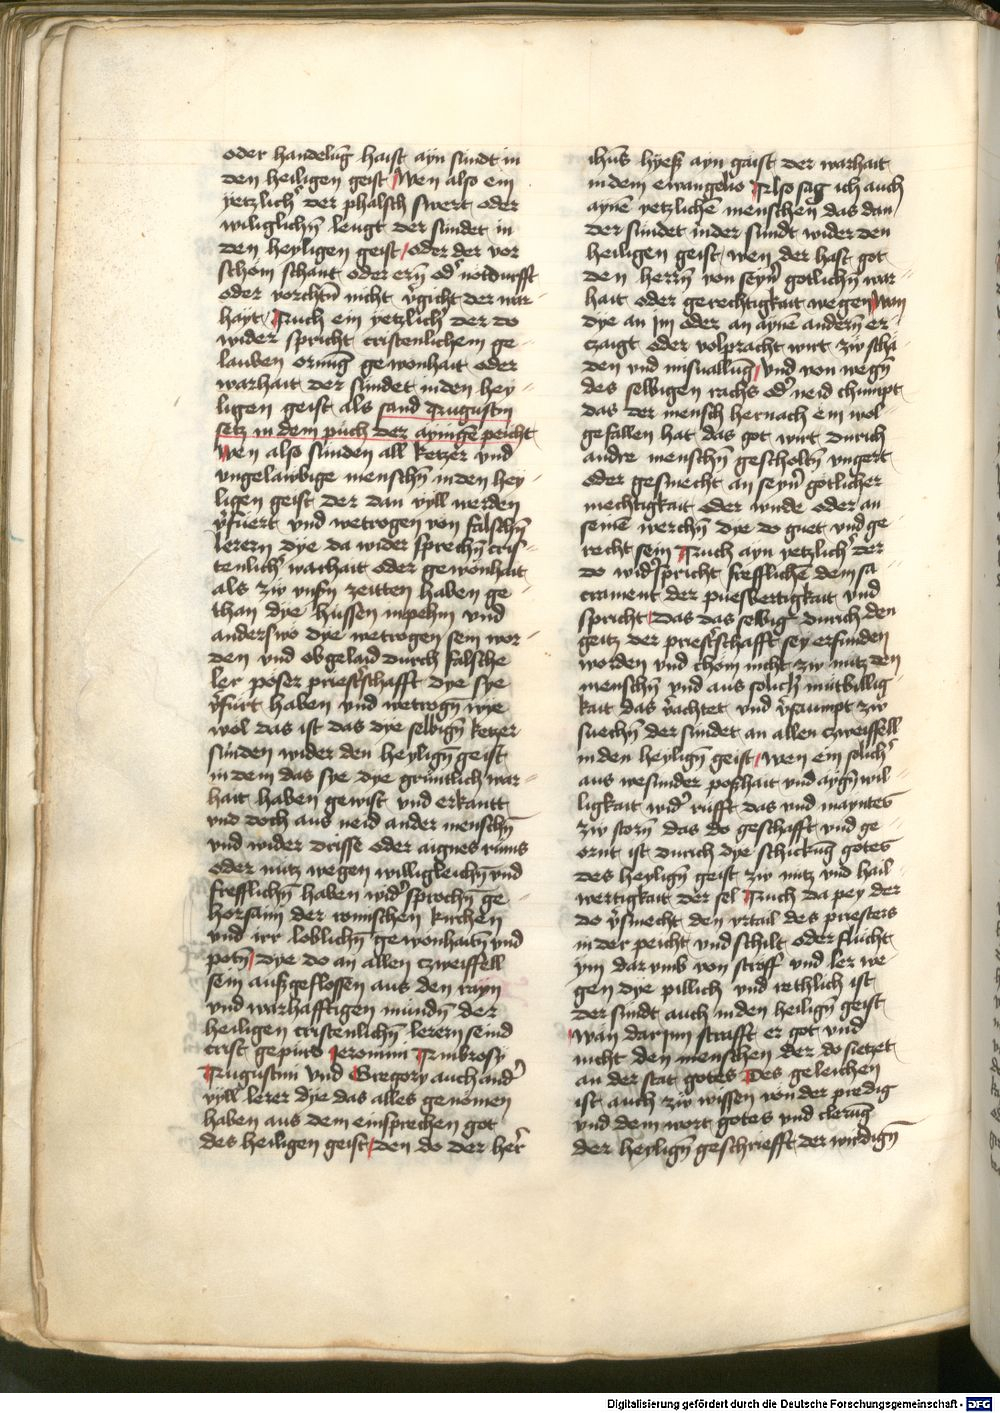 oder handelūg haist ayn sundt in
den heiligen geist Wen also ein
yetzlichr der phalsch swert oder
williglichn̄ leugt der sundet in
den heyligen geist oder der vor
schom schant oder ern̄ odr notdurfft
oder vorchtn̄ nicht v̄gicht der war
hayt Auch ein yetzlichr der do
wider spricht cristenlichem ge
lauben ornūg gewonhait oder
warhait der sundet inden hey
ligen geist als sand Augustin
setz in dem puch der ayingē peicht
Wen also sunden all ketzer vnd
vngelawbige menschn̄ inden hey
ligen geist der dan vyll werden
v̄fuert vnd wetrogen von falschn̄
lerern dye da wider sprechn̄ cris
tenlichr warhait oder gewonhait
als zw vnsn̄ zeitten haben ge
than dye hussen inpehm vnd
anderswo dye wetrogen sein wor
den vnd obgelaid durch falsche
ler poser priestrschafft dye sye
v̄furt haben vnd wetrogn̄ wye
wol das ist das dye selbign̄ ketzer
sunden wider den heylign̄ geist
in dem das sye dye gruntlich war
hait haben gewist vnd erkantt
vnd doch aus neid ander menschn̄
vnd wider drisse oder aignes rums
oder nutz wegen willigleichn̄ vnd
frefflichn̄ haben widr sprochn̄ ge
horsam der romischen kirchen
vnd irr loblichn̄ gewonhaitn̄ vnd
potn̄ dye do an allen czweiffell
sein aufgeflossen aus den rayn
vnd warhafftigen mundn̄ der
heiligen cristenlichn̄ lerern seind
crist gepurd Jeronimi Ambrosy
Augustini vnd Gregory auch andr
vyllr lerer dye das alles genomen
haben aus dem einsprechen got
des heiligen geist den do der herr
ihūs hyeß ayn gaist der warhait
indem ewangelio Also sag ich auch
aynē yetzlichē menschen das dan
der sundet inder sundt wider den
heiligen geist wen der hast got
den herrn̄ von seynr gotlichn̄ war
hait oder gerechtigkait wegen Wan
dye an im oder an aynē andern̄ er
czaigt oder volpracht wirt zw scha
den vnd misuallūg vnd von wegn̄
des selbigen rachs odr neid chumpt
das der mensch hernach ein wol
gefallen hat das got wirt durich
andre menschn̄ gescholtn̄ vngert
oder gesmecht an seynr gotlicher
mechtigkait oder wirde oder an
seinē werchn̄ dye do guet vnd ge
recht sein Auch ayn yetzlichr der
do widrspricht frefflichē dem sa
crament der puesvertigkait vnd
spricht das das selbig durich den
geitz der priestrschafft sey erfunden
worden vnd chom nicht zw nutz den
menschn̄ vnd aus solichr mutbillig
kait das v̄achtet vnd v̄saumpt zw
suechn̄ der sundet an allen czweiffell
inden heylign̄ geist Wen ein solichr
aus wesunder poßhait vnd aygn̄ wil
ligkait widr rüfft das vnd maynted
zw storn̄ das do geschafft vnd ge
ornt ist durich dye schickūg gotes
des heylign̄ geist zw nutz vnd hail
wertigkait der sel Auch da pey der
do v̄smecht den vrtail des priesters
in der peicht vnd schilt oder flucht
ym dar vmb von straff vnd ler we
gen dye pillich vnd rethlich ist
der sindt auch inden heilign̄ geist
wan dar inn strafft er got vnd
nicht den menschen der do sietzet
an der stat gotes Des geleichen
ist auch zw wissen von der predig
vnd dem wort gotes vnd clerūg
der heylign̄ geschriefft der wirdign̄
Digitalisierung gefördert durch die Deutsche Forschungsgemeinschaft - DFG